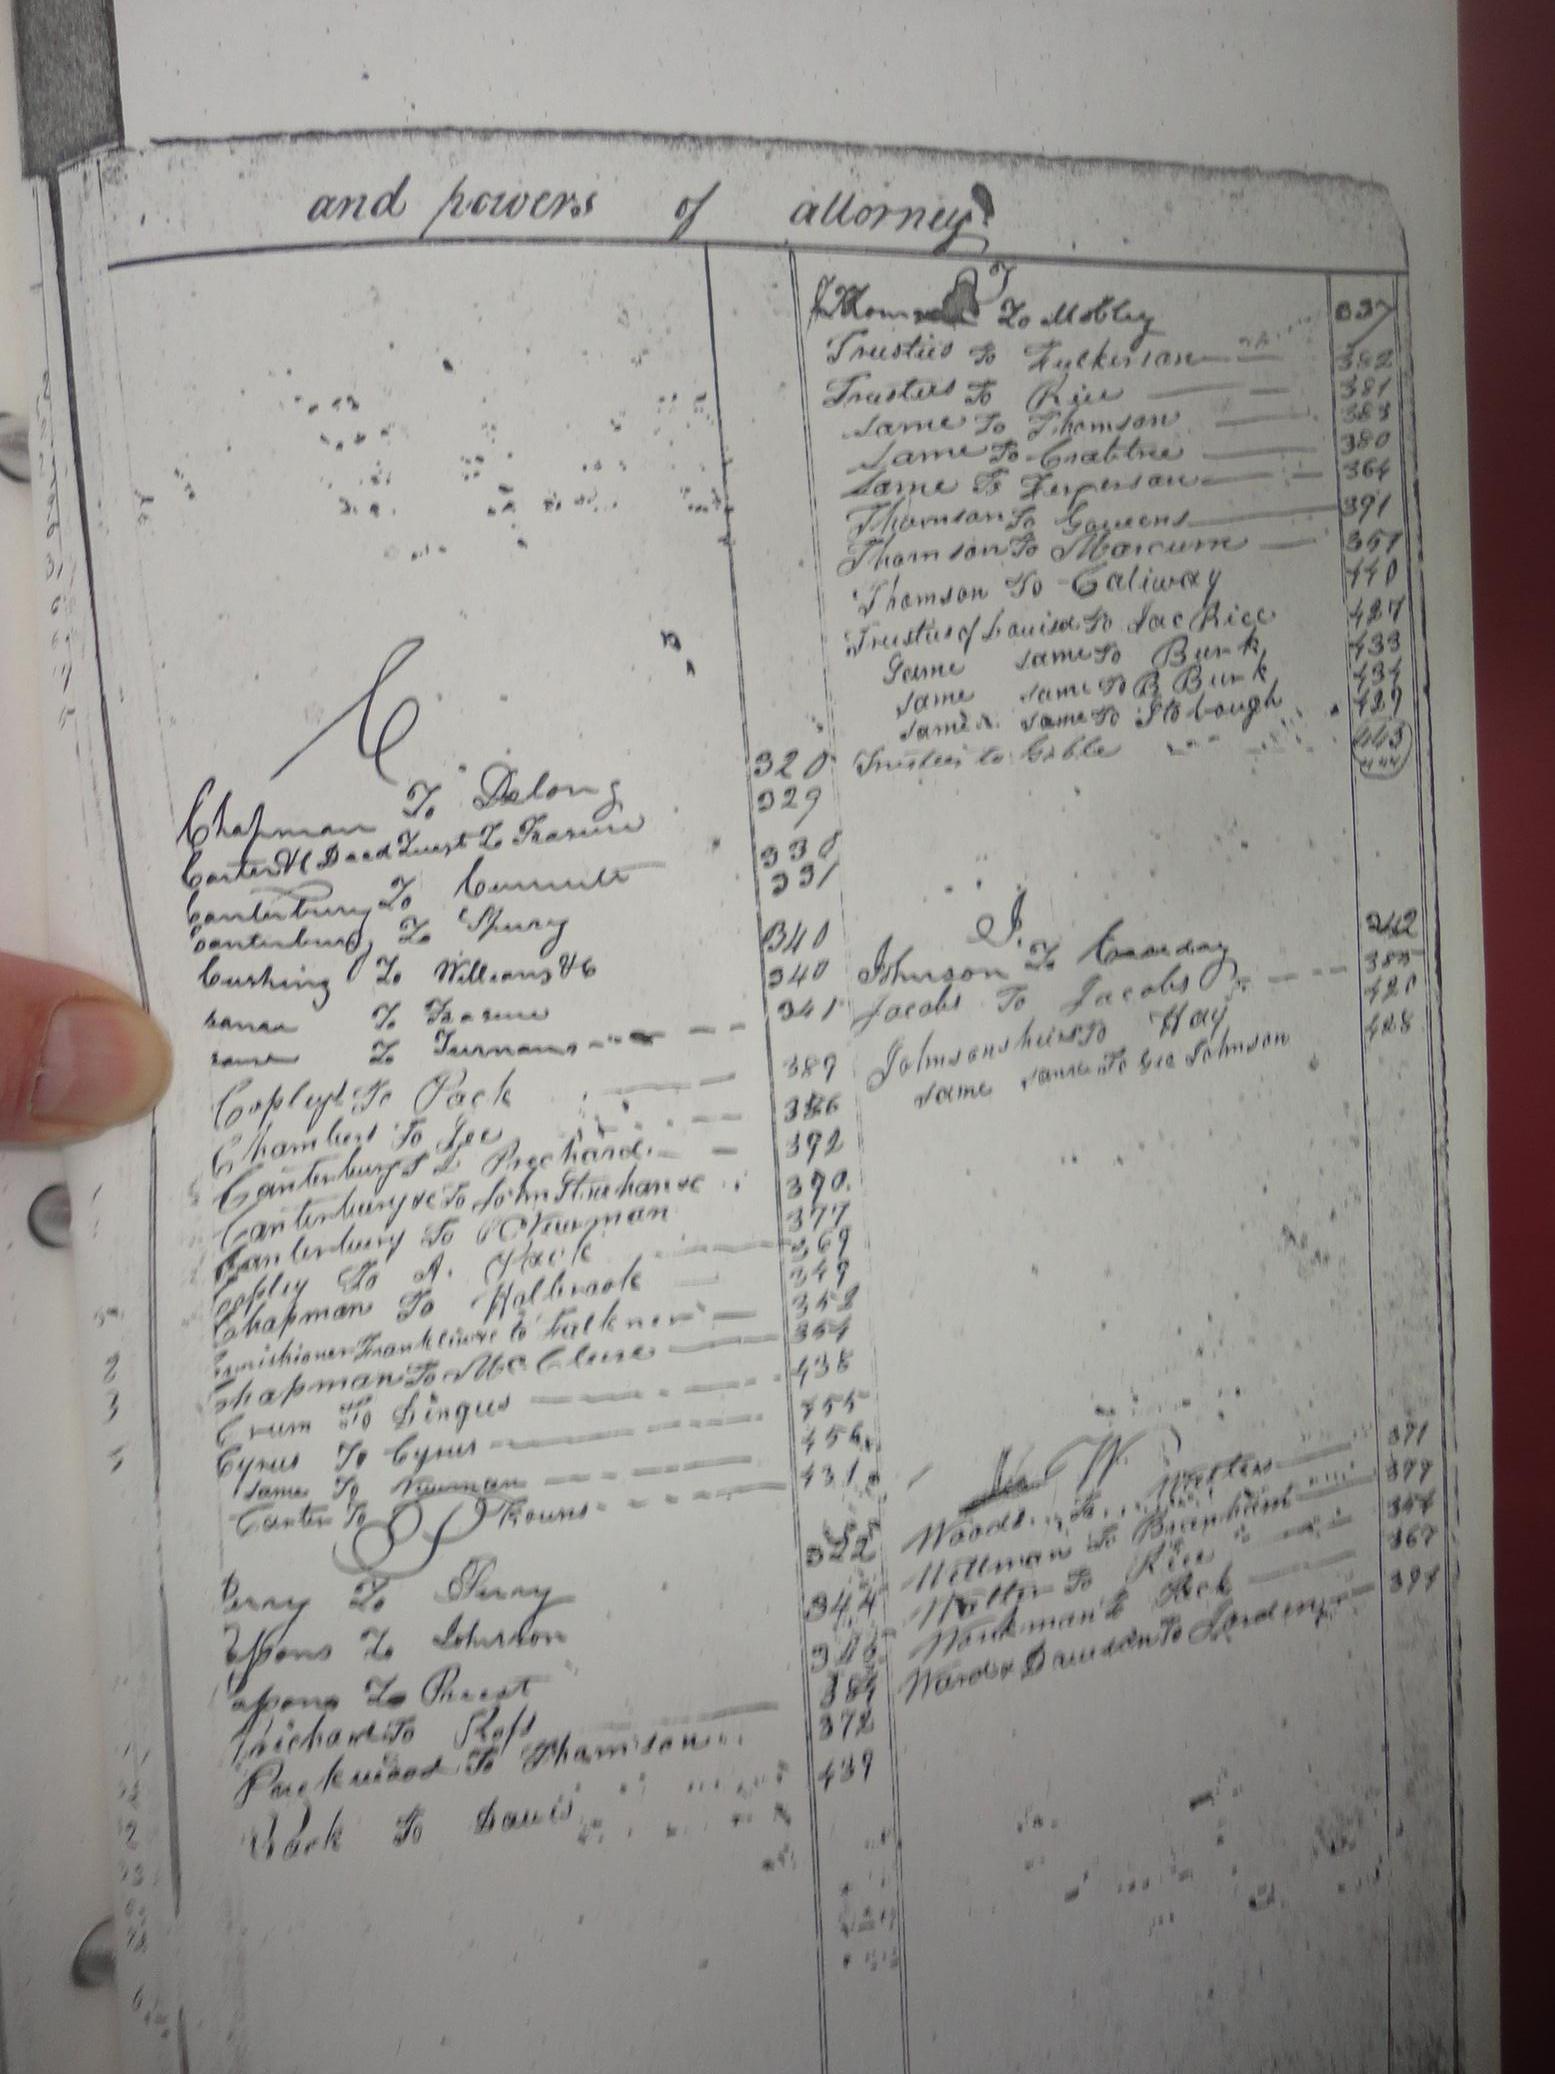 and powers of attorney
C
Chapman To Delong 320
Carter &C Deed Trust To Frasure 329
Canterbury To 330
Canterbury To Spurg 331
Cushing To Williams &C 340
same To Frasure 340
same To Turnams 341
Copleys To Pack 389
Chambers To Lee 386
Canterbury To Prichard 392
Canterbury &c To John Strehan &c 390
Canterbury To Newman 377
Copley To A. Pack 369
Chapman To Holbrook 349
Franklin &c to Falkner 352
Chapman To McClure 354
Crum To Dingus 438
Cyrus To Cyrus 455
same To Newman 456
Carter To Kouns 431
P
Perry To Perry 322
To Johnson 344
To Priest 346
Prichard To Ross 384
Parkwood To Thomson 372
Pack To Davis 439
T
To Mobley 337
Trusties To Fulkerson 382
Trusties To Rice 381
same To Thomson 383
same To Crabtree 380
same To Ferguson 364
Thomson To Gowens 391
Thomson To Marcum 357
Thomson To Caliway 440
Trusties of Louisa To Jac Rice 427
same same To Burk 433
same same To B Burk 434
same same To Stobough 429
Trusties to Gible 443
J.
Johnson To 342
Jacobs To Jacobs 385
Johnsons heirs To Hay 420
same same To Geo Johnson 428
W
Woods To Walters 371
Wellman To Branham 379
Walter To Rice 354
Workman To Peck 367
Ward & Davidson To 394